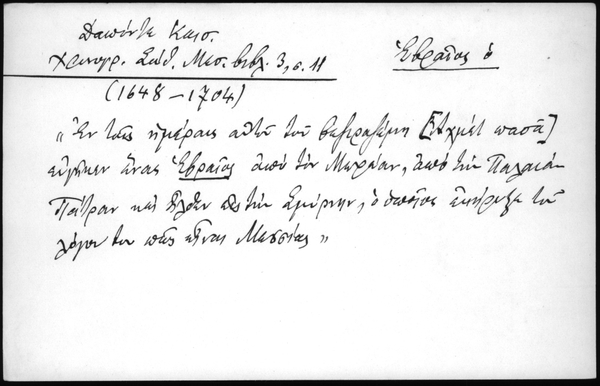 Δαπόντε Καισ.
Χρονογρ. Σάθ. Μεσ. βιβλ. 3, σ. 11
Ἑβραῖος ὁ
(1648-1704)
"Ἐν ταῖς ἡμέραις αὐτοῦ τοῦ βεζιραζέμη [Ἀχμὲτ πασᾶ]
εὐγῆκεν ἕνας Ἑβραῖος ἀπὸ τὸν Μωρέαν, ἀπὸ τὴν Παλαιὰν
Πάτραν καὶ ἦλθεν εἰς τὴν Σμύρνην, ὁ ὁποῖος ἐκήρυξε τοῦ
λόγου του πῶς εἶναι Μεσσίας"